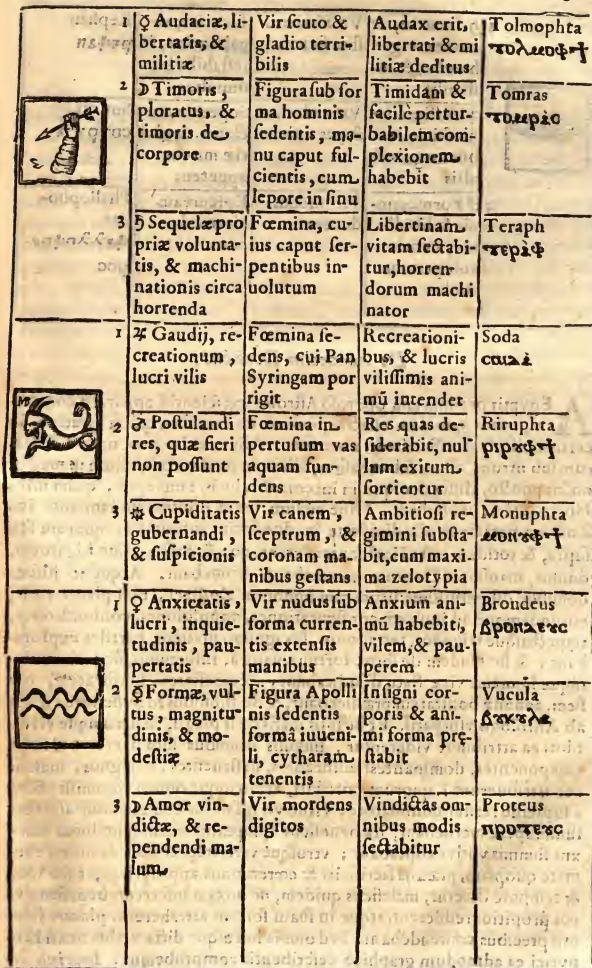 1
☿ Audaciæ, li-
bertatis, &
militiæ
Vir ſcuto &
gladio terri-
bilis
Audax erit,
libertati & mi
litiæ deditus
Tolmophta
ⲧⲟⲗⲙⲟⲫϯ
2
☽ Timoris,
ploratus, &
timoris de
corpore
Figura ſub for
ma hominis
ſedentis, ma-
nu caput ful-
cientis, cum
lepore in ſinu
Timidam &
facilè pertur-
babilem com-
plexionem
habebit
Tomras
3
♄ Sequelæ pro
priæ volunta-
tis, & machi-
nationis circa
horrenda
Fœmina, cu-
ius caput ſer-
pentibus in-
uolutum
Libertinam
vitam ſectabi-
tur, horren-
dorum machi
nator
Teraph
1
♃ Gaudij, re-
creationum,
lucri vilis
Fœmina ſe-
dens, cui Pan
Syringam por
rigit
Recreationi-
bus, & lucris
viliſſimis ani-
mū intendet
Soda
2
♂ Poſtulandi
res, quæ fieri
non poſſunt
Fœmina in
pertuſum vas
aquam fun-
dens
Res quas de-
ſiderabit, nul-
lum exitum
ſortientur
Riruphta
ⲣⲓⲣⲟⲩⲫϯ
3
☼ Cupiditatis
gubernandi,
& ſuſpicionis
Vir canem,
ſceptrum, &
coronam ma-
nibus geſtans
Ambitioſi re-
gimini ſubſta-
bit, cum maxi-
ma zelotypia
Monuphta
ⲙⲟⲛⲟⲩⲫϯ
1
♀ Anxietatis,
lucri, inquie-
tudinis, pau-
pertatis
Vir nudus ſub
forma curren-
tis extenſis
manibus
Anxium ani-
mū habebit,
vilem, & pau-
perem
Brondeus
2
☿ Formæ, vul-
tus, magnitu-
dinis, & mo-
deſtiæ
Figura Apolli
nis ſedentis
formâ iuueni-
li, cytharam
tenentis
Inſigni cor-
poris & ani-
mi forma prę-
ſtabit
Vucula
3
☽ Amor vin-
dictæ, & re-
pendendi ma-
lum
Vir mordens
digitos
Vindictas om-
nibus modis
ſectabitur
Proteus
ⲡⲣⲟⲧⲉⲩⲥ